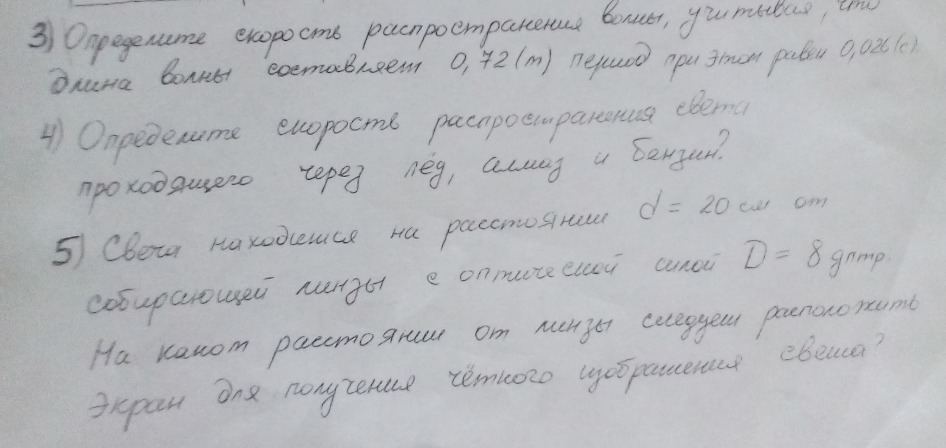 3) Определите скорость распространения волны, учитывая, что
длина волны составляет 0,72 (m) период при этом равен 0,026 (с).
4) Определите скорость распространения света
проходящего через лёд, алмаз и бензин?
5) Свеча находится на расстоянии d = 20 см от
собирающей линзы с оптической силой D = 8 дптр.
На каком расстоянии от линзы следует расположить
экран для получения чёткого изображения света?